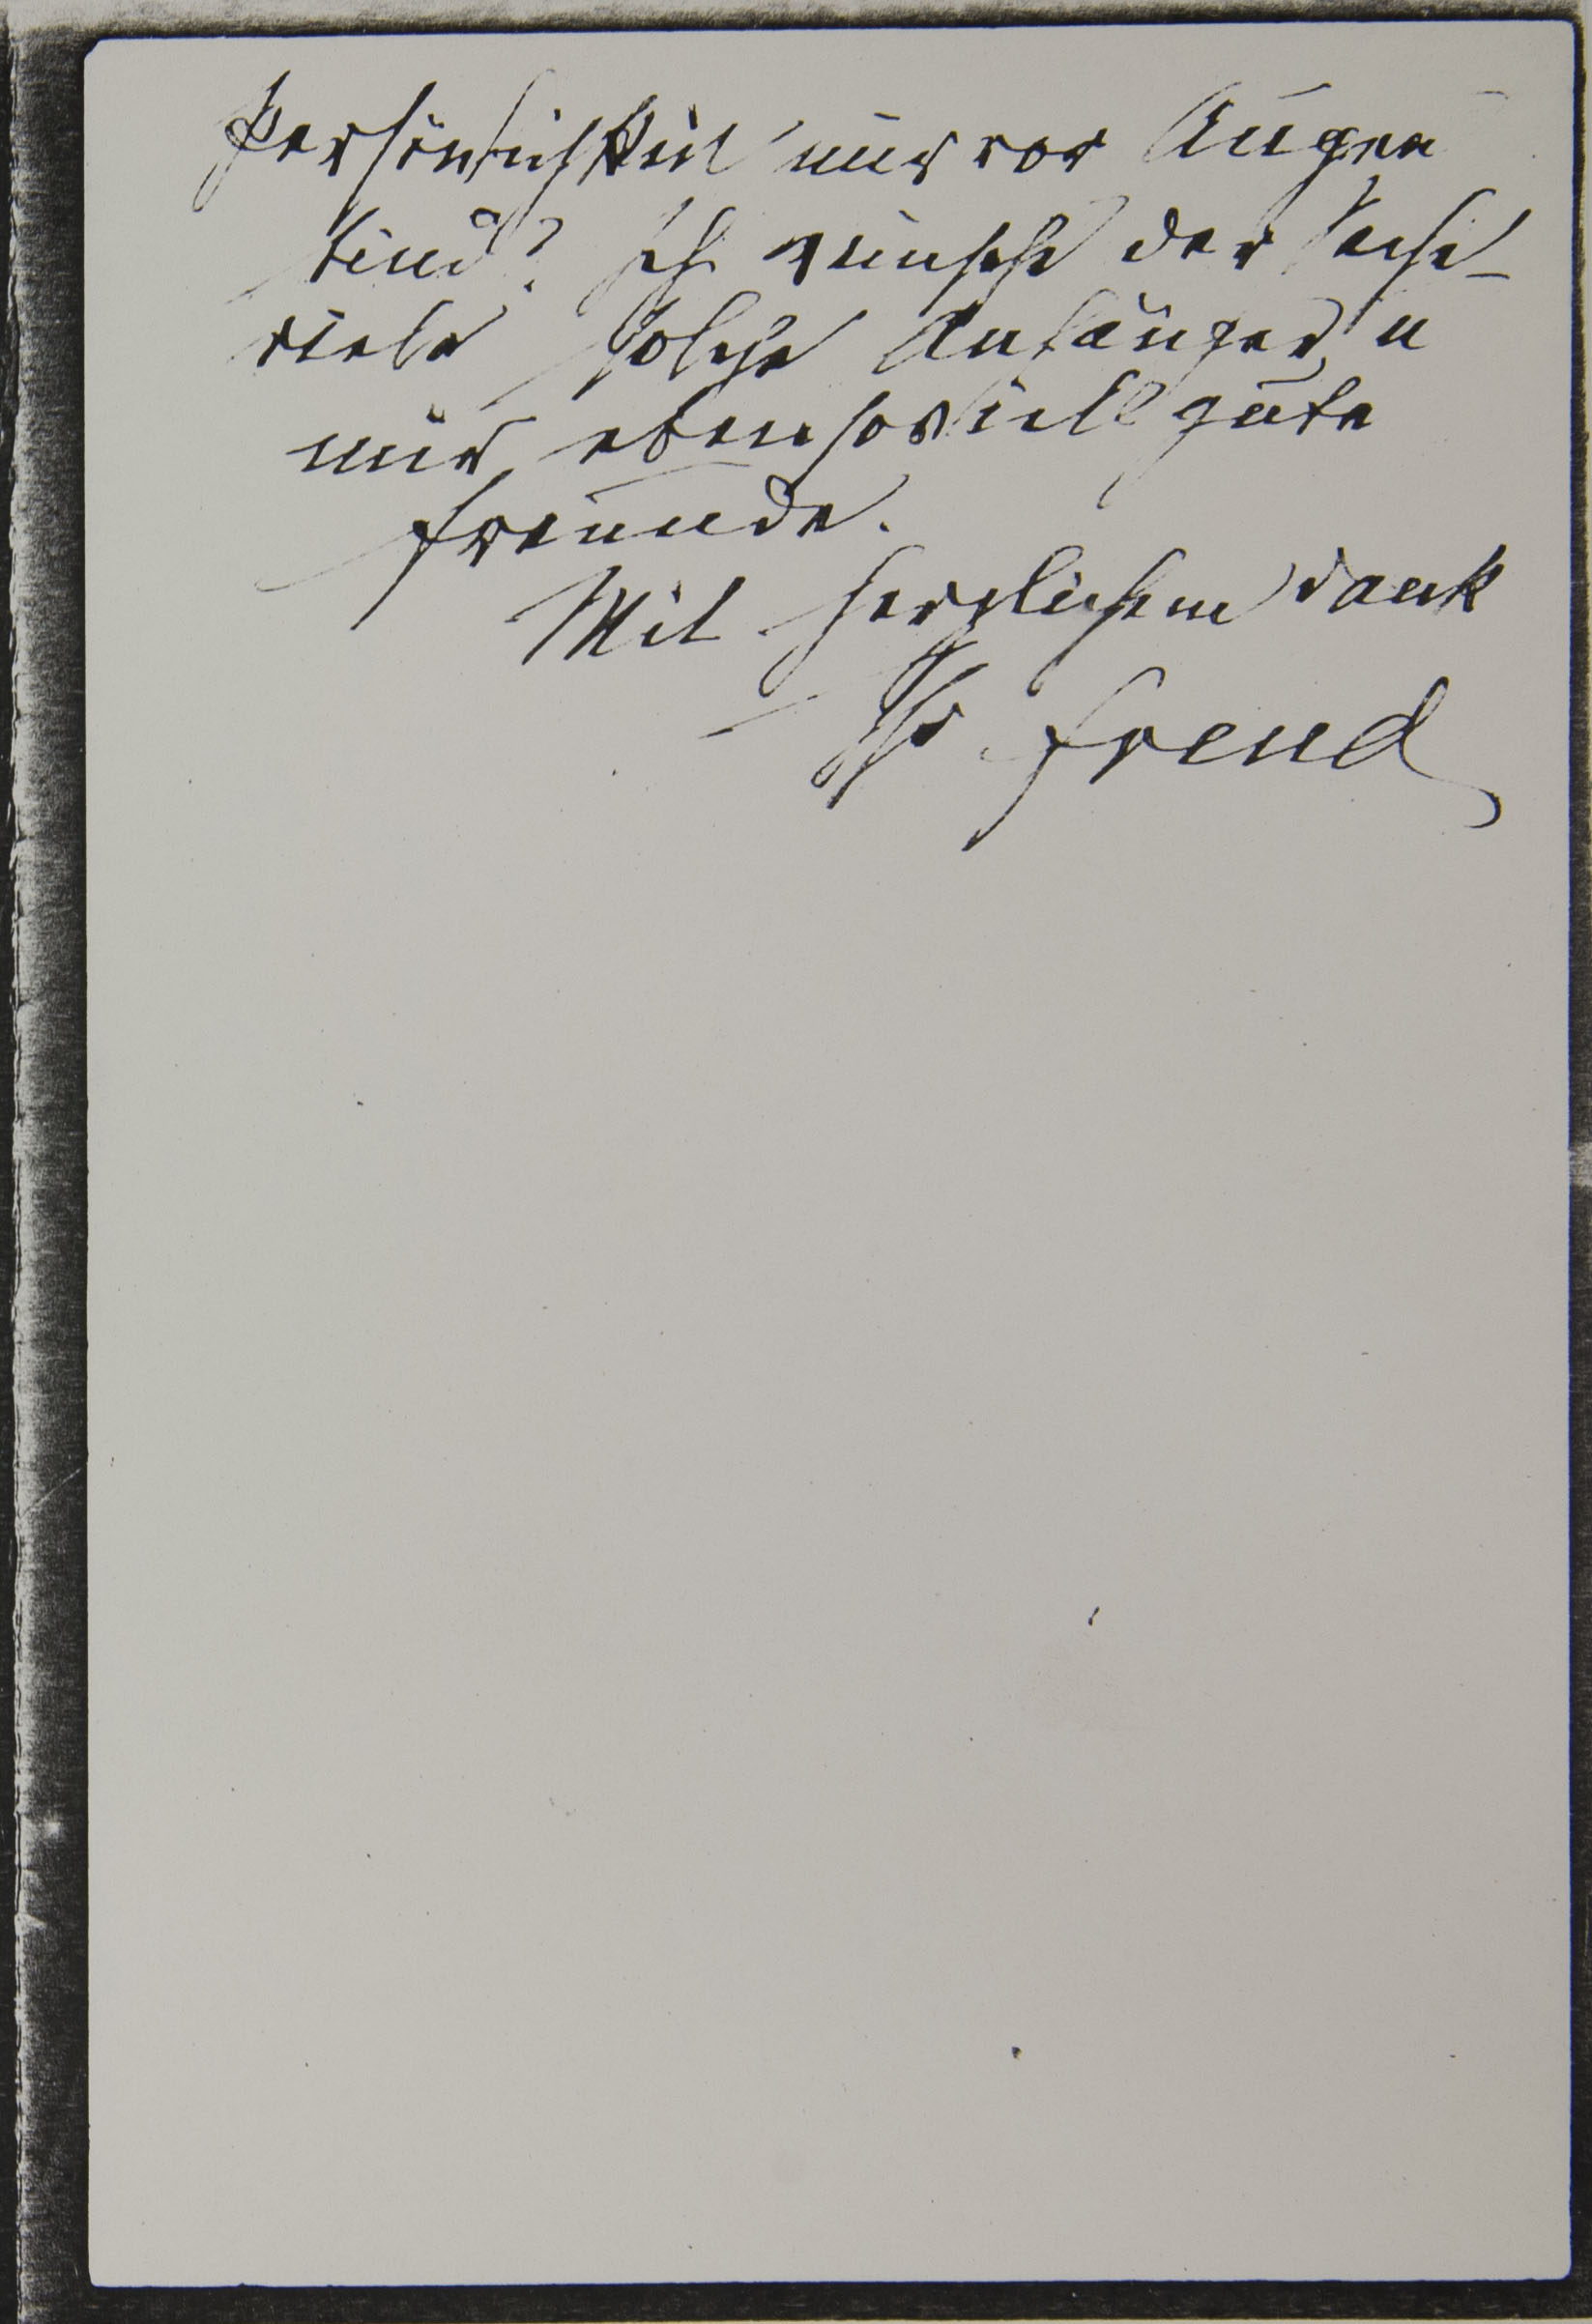 Persönlichkeit nur vor Augen
sind? Ich wünsche der Sache
viele solche Anfänger u
mir ebensoviele gute
Freunde.
Mit herzlichem Dank
Ihr Freud